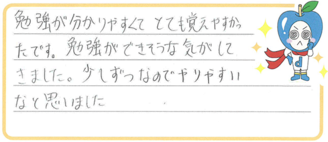 勉強が分かりやすくて とても覚えやすかっ
たです。勉強ができそうな気がして
きました。少しずつなのでやりやすい
なと思いました